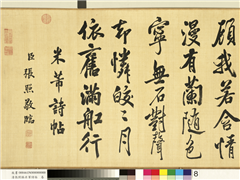 顧我若含情
漫有蘭隨色
寧無石對聲
却憐皎々月
依舊滿船行
米芾詩帖
臣張照敬臨